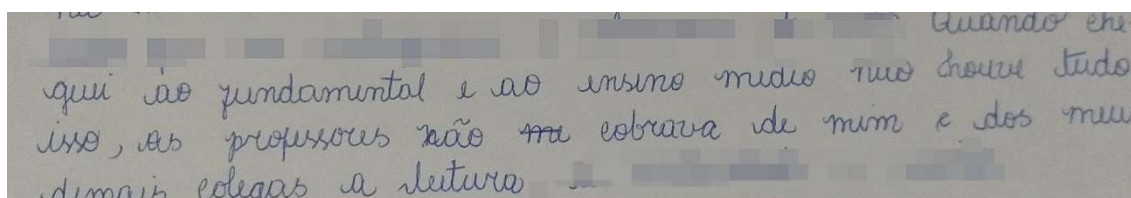 Quando che-
guei ao fundamental e ao ensino medio nuo chouve tudo
isso, os professores não me cobrava de mim e dos meu
demais colegas a leitura